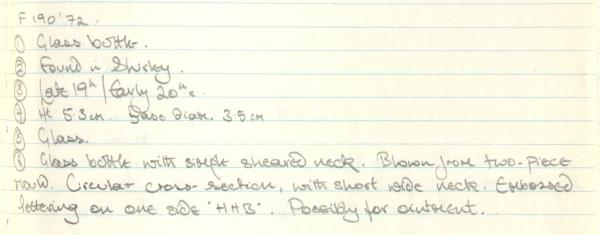 F190'72.
① Glass bottle.
② Found in
③ Late 19th / Early 20th c.
④ Ht 5.3cm. Base diam. 3.5cm
⑤ Glass.
⑥ Glass bottle with simple sheared neck. Blown from two-piece
mould. Circular cross-section, with short wide neck. Embossed
lettering on one side 'HHB'. Possibly for ointment.